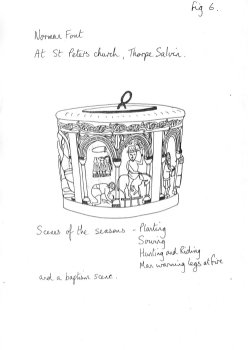 Fig 6.
Norman Font
At St Peters church, Thorpe Salvin.
Scenes of the seasons - Planting
Sowing
Hunting and Riding
Man warming legs at fire
and a baptism scene.